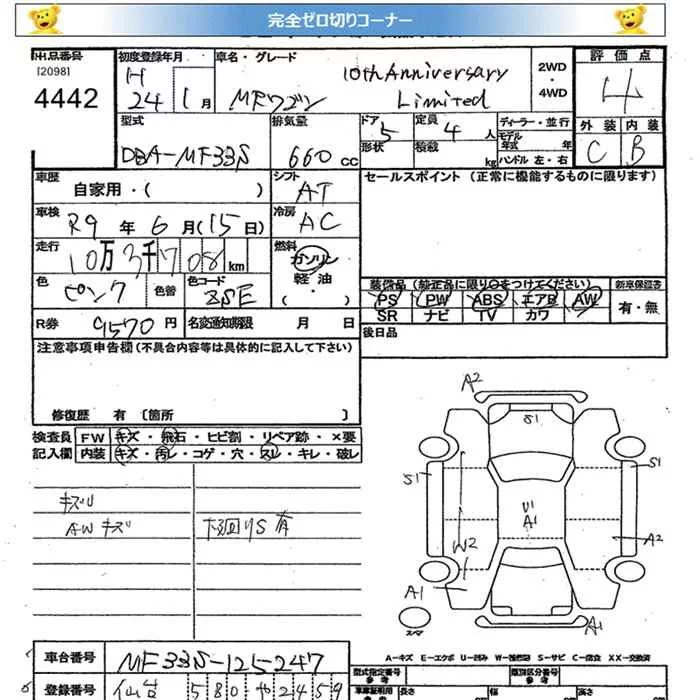 完全ゼロ切りコーナー
出品番号 初度登録年月 車名・グレード 評価点
[2098] H 10th Anniversary 2WD
4442 24 1月 MRワゴン Limited ・4WD 4
型式 排気量 ドア 定員 ディーラー・並行 外装 内装
DBA-MF33S 660cc 5 4人 モデル年式 年
形状 積載 kg ハンドル 左・右 C B
車歴 自家用・( ) シフト AT セールスポイント (正常に機能するものに限ります)
車検 R9年6月(15日) 冷房 AC
走行 10万3千708km 燃料 ガソリン
軽油
・( )
色 ピンク 色替 色コード ZSE 装備品(純正品に限り○をつけてください) 新車保証書
PS PW ABS エアB AW 有・無
SR ナビ TV カワ
R券 9570円 名変通知期限 月 日 後日品
注意事項申告欄(不具合内容等は具体的に記入して下さい)
修復歴 有 〔箇所 〕
検査員 FW キズ・飛石・ヒビ割・リペア跡・×要
記入欄 内装 キズ・汚レ・コゲ・穴・スレ・キレ・破レ
キズU
AWキズ 下廻りS有
A2
S1
S1 S1
U1
A1
W2 A2
A1 A1
スペア
A-キズ E-エクボ U-凹み W-補修跡 S-サビ C-腐食 XX-交換済
車台番号 MF33S-125247 型式指定番号 参考 類別区分番号 参考
登録番号 仙台 580 や 2459 車庫証明用 参考 長さ 幅 高さ